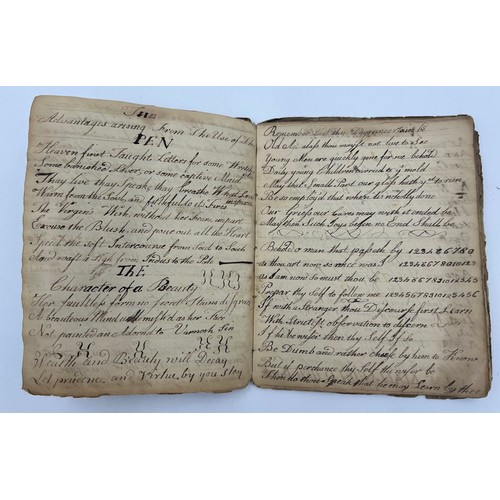 The
Advantages arising From The Use of The
PEN
Heaven first Taught Letters for some Wretch
Some banished Lover, or some captive Maid
They live they Speak they breathe What Love
inspires
Warm from the Soul, and faithful to its Fires
The Virgin's Wish without her Fears impart
Excuse the Blush, and pour out all the Heart
Speed the soft Intercourse from Soul to Soul
And waft a Sigh from Indus to the Pole
The
Character of a Beauty
Her faultless form no
A beauteous Mind
Not painted
Wealth and Beauty will Decay
Let prudence and Virtue by you stay
Remember
Old Age
Young Men are quickly gone for we behold
Daily young Children
May that Small Part our glass hath yet to run
Be so employd that when
Our Griefs or Cares may with it ended be
May then Such Joys before us End Shall be
Behold o man that passeth by 1 2 3 4 5 6 7 8 9
as thou art now so once was I 1 2 3 4 5 6 7 8 9 10 11
as I am now so must thou be 1 2 3 4 5 6 7 8 9 10 11 12
Prepar thy Self to follow me 1 2 3 4 5 6
If with a Stranger thou Discourse first Learn
With Strictest observation to discern
If he be wiser then thy Self If So
Be Dumb and rather chuse by him to Know
But if perchance thy Self the wiser be
Then do thou Speak that he may Learn by thee